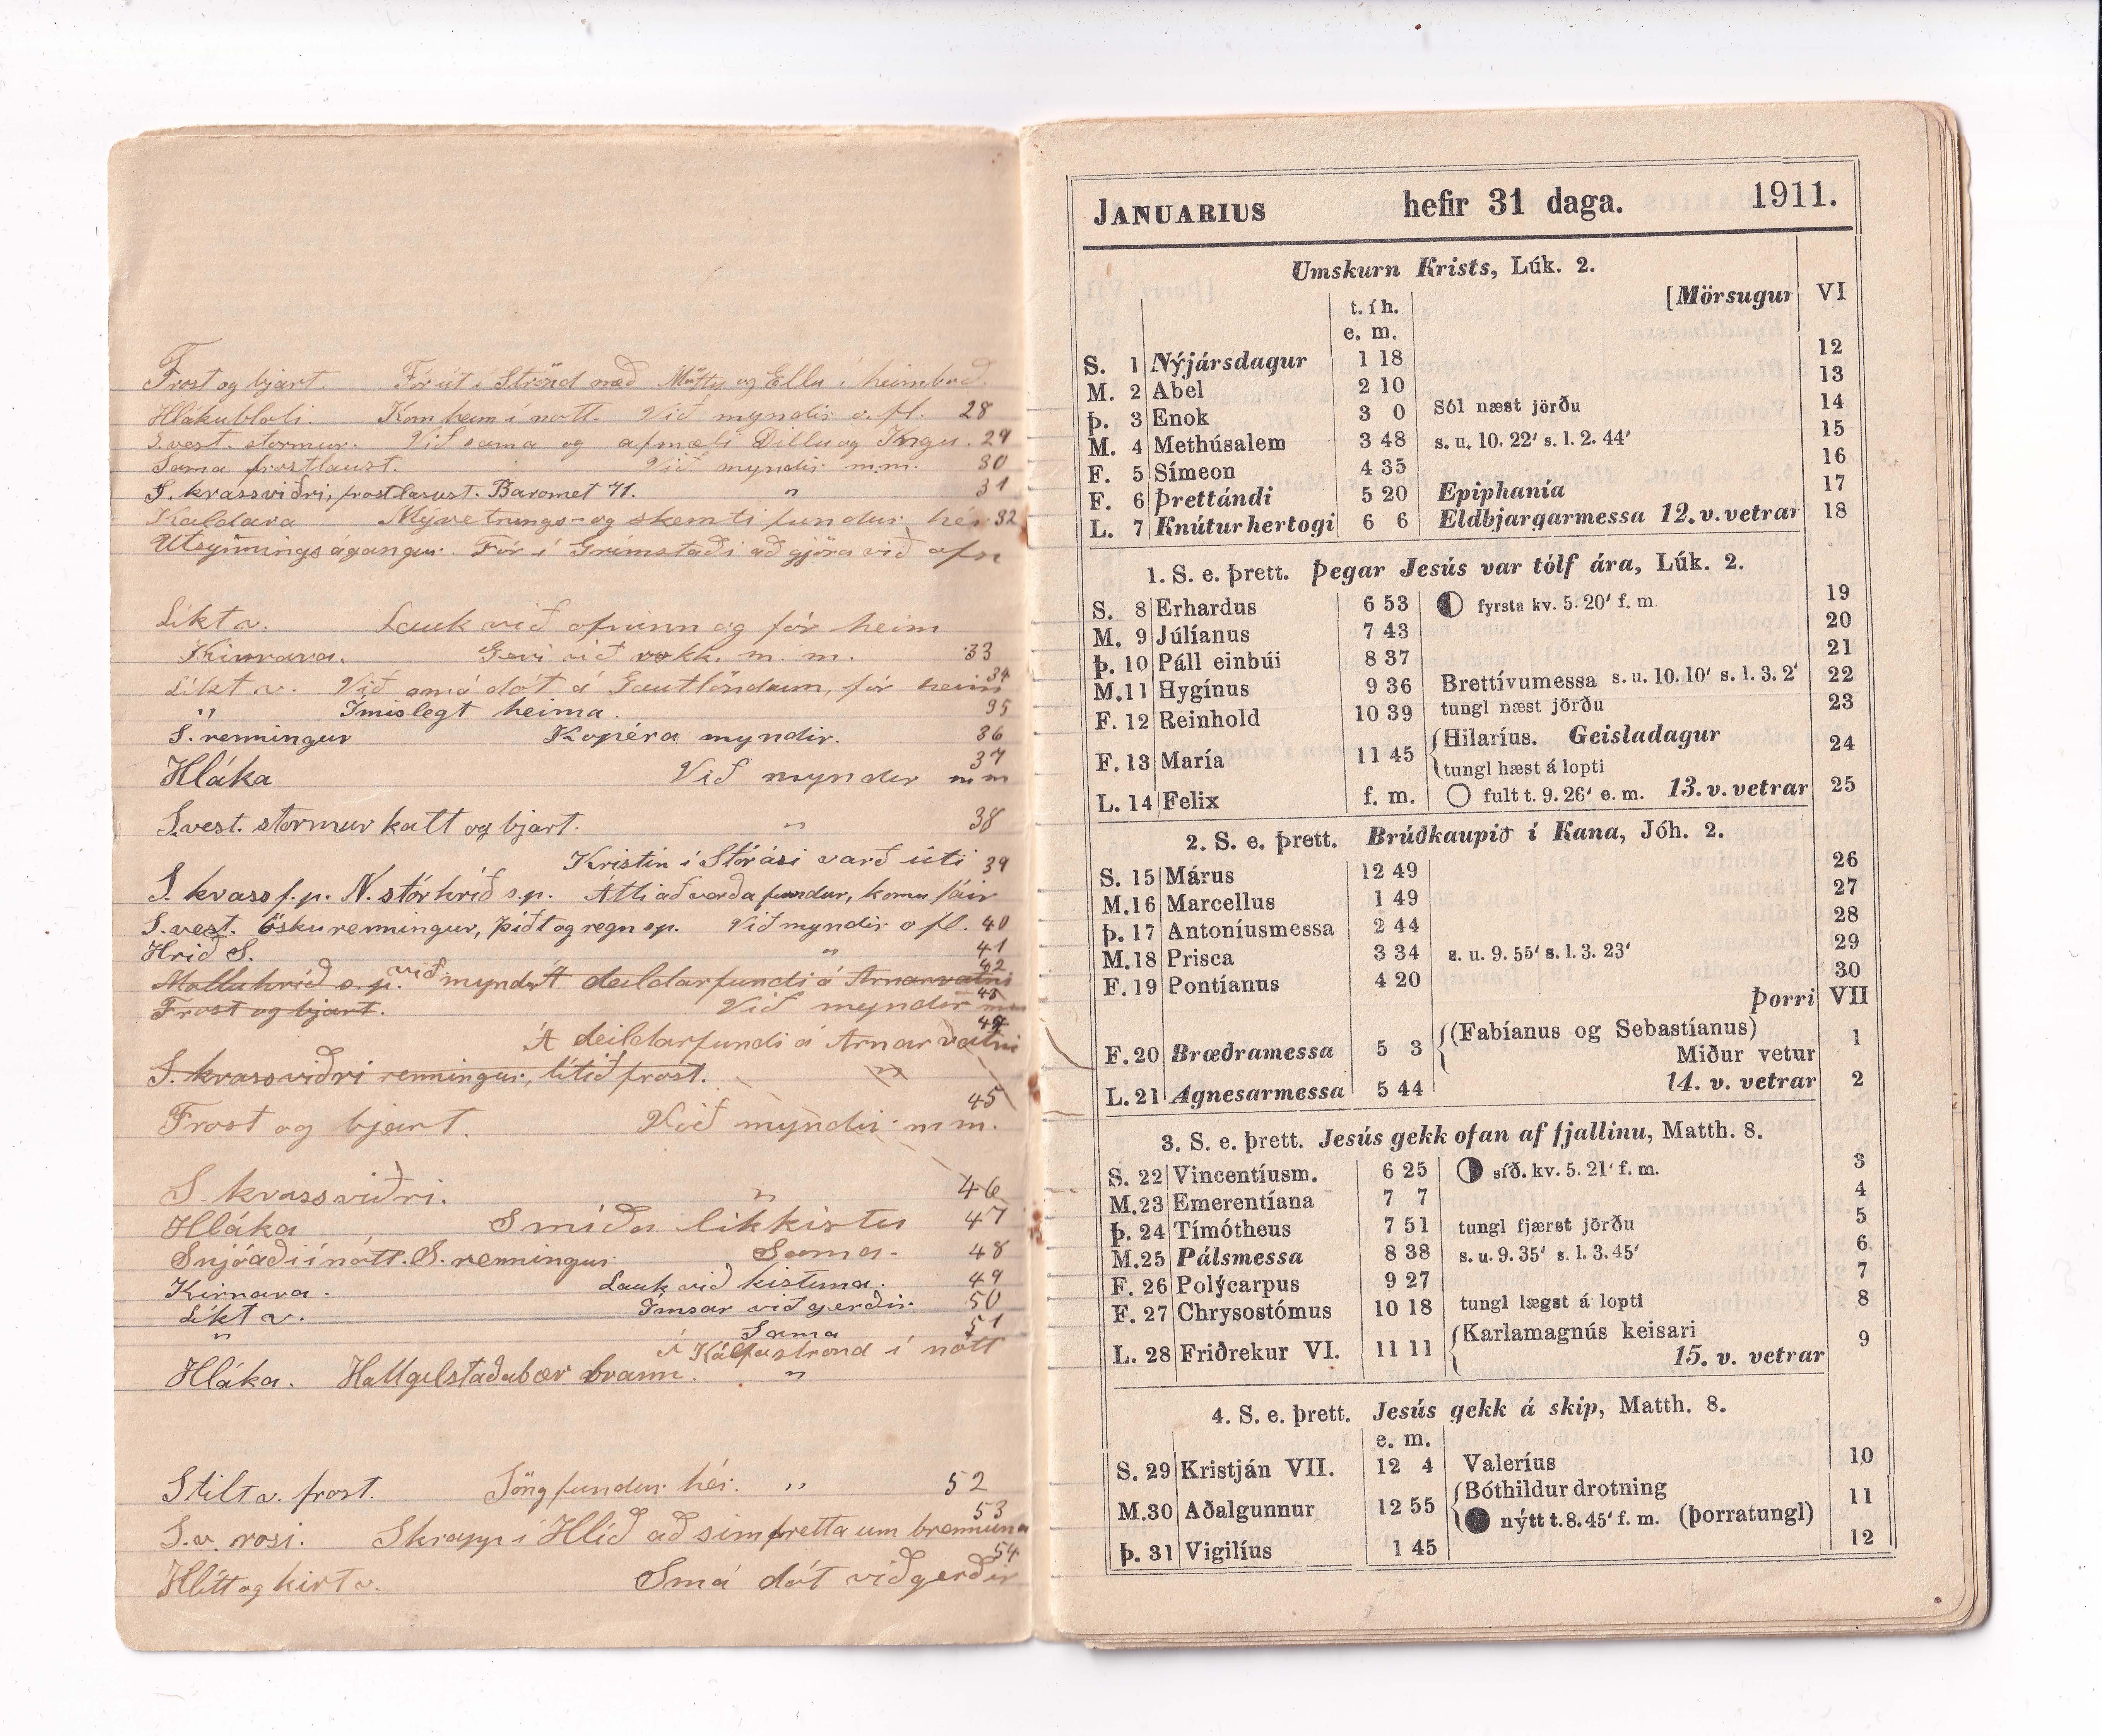 Frost og bjart. Fór út í Strönd með og Ellu í heimboð.
Hlákubloti. Kom heim í nott. Við myndir o. fl. 28
S.vest. stormur. Við sama og afmæli Dillu og Yngu. 29
Sama frostlaust. Við myndir m.m. 30
S. kvassviðri, frostlaust. Baromet 71. " 31
Kaldara Mývetnings- og skemtifundur hér 32
Utsynningságangur. Fór í Grímstaði að gjöra við ofn
Líkt v. Lauk við ofninn og fór heim
Kinrara. Geri við rokk. m. m. 33
Líkt v. Við smá dót á Gautlöndum, fór heim 34
" Ímislegt heima. 35
S. renningur Kopéra myndir. 36
Hláka Við myndir m m 37
S.vest. stormur kalt og bjart. " 38
Kristín í Stórási varð úti 39
S. kvass f.p. N. stórhríð s.p. Átti að verða fundur, komu fáir
S.vest. Öskurenningur, þídt og regn sp. Við myndir o fl. 40
Hríð S. " 41
Molluhríð s. p. við myndir Á deildarfundi á Arnarvatni 42
Frost og bjart. Við myndir mm 43
Á deildarfundi á Arnarvatni 44
S. kvassviðri renningur, lítið frost. "
Frost og bjart. Við myndir m m. 45
S. kvassviðri. " 46
Hláka Smíða líkkistu 47
Snjóaði í nótt. S. renningur Sama. 48
Kirrara. Lauk við kistuna. 49
Líkt v. Ímsar viðgerðir. 50
" Sama 51
í Kálfaströnd í nótt
Hláka. Hallgilstaðabær brann. "
Stilt v. frost. Söngfundur hér. " 52
S.v. rosi. Skrapp í Hlíð að símfretta um brennuna 53
Hlítt og kirt v. Smá dót viðgerðir 54
JANUARIUS hefir 31 daga. 1911.
Umskurn Krists, Lúk. 2.
[Mörsugur VI
t. í h.
e. m.
S. 1 Nýjársdagur 1 18 12
M. 2 Abel 2 10 13
Þ. 3 Enok 3 0 Sól næst jörðu 14
M. 4 Methúsalem 3 48 s. u. 10. 22' s. l. 2. 44' 15
F. 5 Símeon 4 35 16
F. 6 Þrettándi 5 20 Epiphanía 17
L. 7 Knútur hertogi 6 6 Eldbjargarmessa 12. v. vetrar 18
1. S. e. þrett. Þegar Jesús var tólf ára, Lúk. 2.
S. 8 Erhardus 6 53 fyrsta kv. 5. 20' f. m. 19
M. 9 Júlíanus 7 43 20
Þ. 10 Páll einbúi 8 37 21
M. 11 Hygínus 9 36 Brettívumessa s. u. 10. 10' s. l. 3. 2' 22
F. 12 Reinhold 10 39 tungl næst jörðu 23
F. 13 María 11 45 {Hilaríus. Geisladagur 24
tungl hæst á lopti
L. 14 Felix f. m. fult t. 9. 26' e. m. 13. v. vetrar 25
2. S. e. þrett. Brúðkaupið í Kana, Jóh. 2.
S. 15 Márus 12 49 26
M. 16 Marcellus 1 49 27
Þ. 17 Antoníusmessa 2 44 28
M. 18 Prisca 3 34 s. u. 9. 55' s. l. 3. 23' 29
F. 19 Pontíanus 4 20 30
Þorri VII
F. 20 Bræðramessa 5 3 {(Fabíanus og Sebastíanus) 1
Miður vetur
L. 21 Agnesarmessa 5 44 14. v. vetrar 2
3. S. e. þrett. Jesús gekk ofan af fjallinu, Matth. 8.
S. 22 Vincentíusm. 6 25 síð. kv. 5. 21' f. m. 3
M. 23 Emerentíana 7 7 4
Þ. 24 Tímótheus 7 51 tungl fjærst jörðu 5
M. 25 Pálsmessa 8 38 s. u. 9. 35' s. l. 3. 45' 6
F. 26 Polýcarpus 9 27 7
F. 27 Chrysostómus 10 18 tungl lægst á lopti 8
L. 28 Friðrekur VI. 11 11 {Karlamagnús keisari 9
15. v. vetrar
4. S. e. þrett. Jesús gekk á skip, Matth. 8.
e. m.
S. 29 Kristján VII. 12 4 Valeríus 10
M. 30 Aðalgunnur 12 55 {Bóthildur drotning 11
nýtt t. 8. 45' f. m. (þorratungl)
Þ. 31 Vigilíus 1 45 12